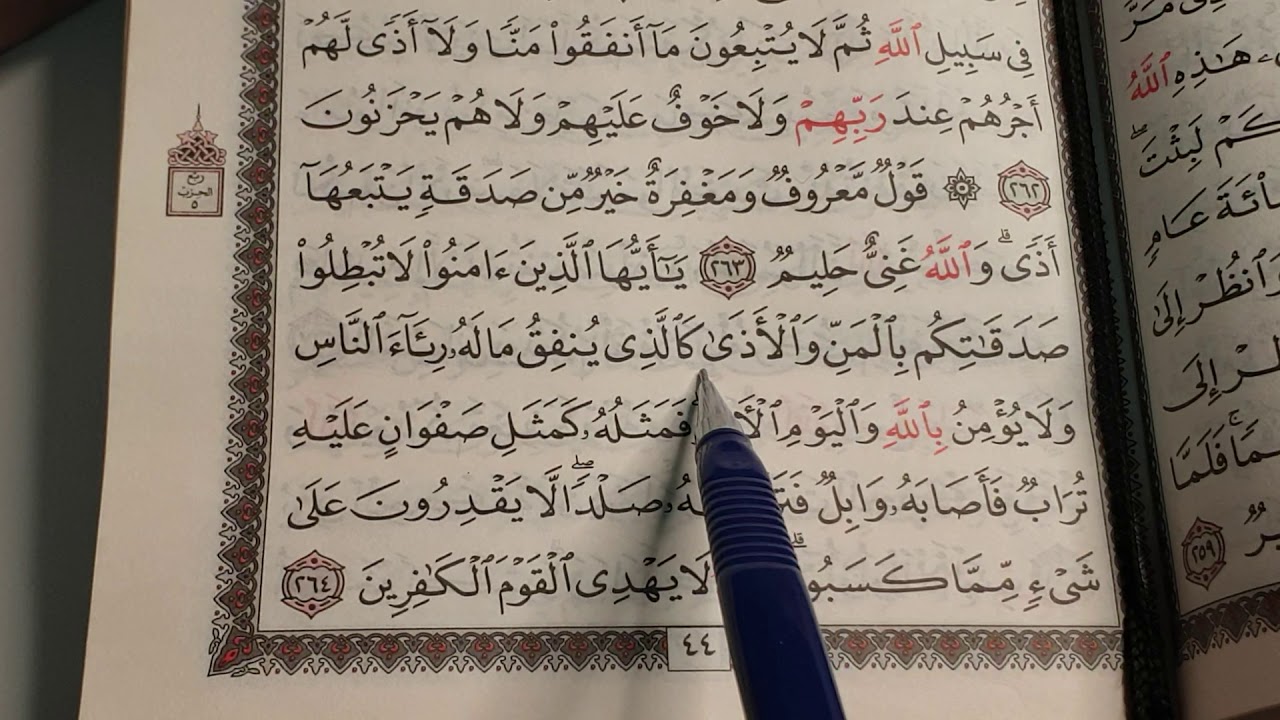 فِى سَبِيلِ ٱللَّهِ ثُمَّ لَا يُتْبِعُونَ مَآ أَنفَقُوا۟ مَنًّا وَلَآ أَذًى لَّهُمْ
أَجْرُهُمْ عِندَ رَبِّهِمْ وَلَا خَوْفٌ عَلَيْهِمْ وَلَا هُمْ يَحْزَنُونَ
٢٦٢ ۞ قَوْلٌ مَّعْرُوفٌ وَمَغْفِرَةٌ خَيْرٌ مِّن صَدَقَةٍ يَتْبَعُهَآ
أَذًى ۗ وَٱللَّهُ غَنِىٌّ حَلِيمٌ ٢٦٣ يَـٰٓأَيُّهَا ٱلَّذِينَ ءَامَنُوا۟ لَا تُبْطِلُوا۟
صَدَقَـٰتِكُم بِٱلْمَنِّ وَٱلْأَذَىٰ كَٱلَّذِى يُنفِقُ مَالَهُۥ رِئَآءَ ٱلنَّاسِ
وَلَا يُؤْمِنُ بِٱللَّهِ وَٱلْيَوْمِ فَمَثَلُهُۥ كَمَثَلِ صَفْوَانٍ عَلَيْهِ
تُرَابٌ فَأَصَابَهُۥ وَابِلٌ صَلْدًا ۖ لَّا يَقْدِرُونَ عَلَىٰ
شَىْءٍ مِّمَّا كَسَبُوا۟ ۗ لَا يَهْدِى ٱلْقَوْمَ ٱلْكَـٰفِرِينَ ٢٦٤
٤٤
ربع
الحزب
٥
هَـٰذِهِ ٱللَّهُ
كَمْ لَبِثْتَ ۖ
عَامٍ
وَٱنظُرْ إِلَىٰ
إِلَى
فَلَمَّا
٢٥٩